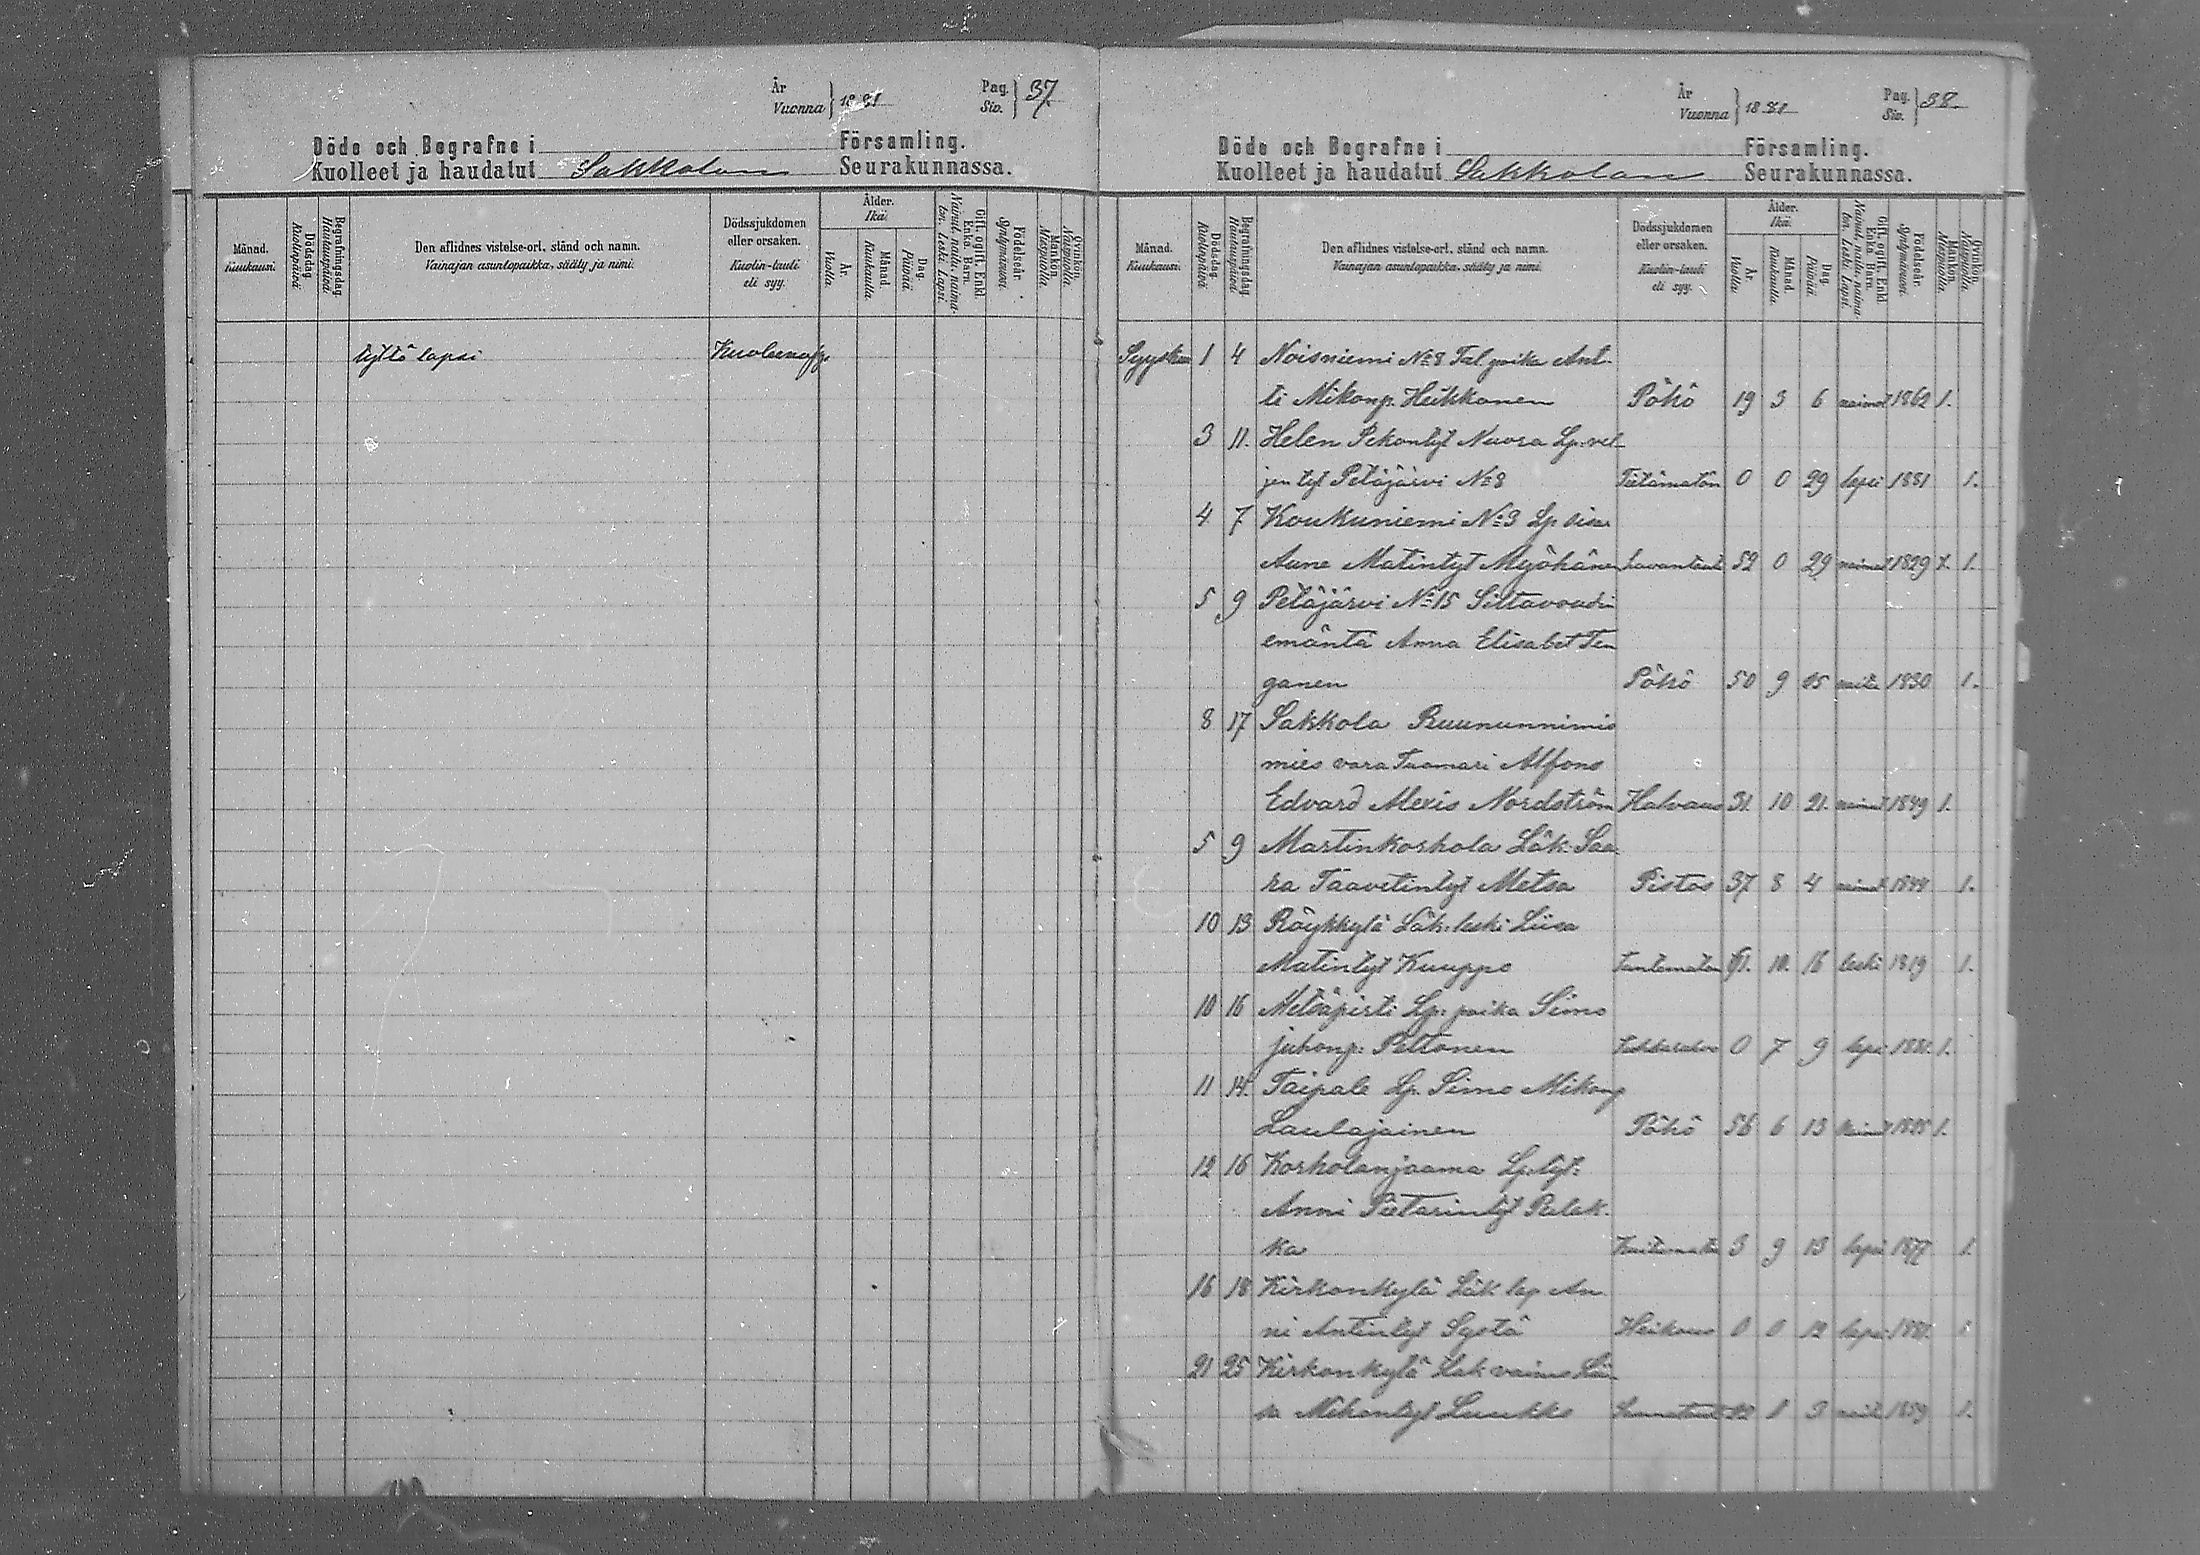 År
Vuonna } 1881
Pag.
Siv. } 37
Döde och Begrafne i Församling.
Kuolleet ja haudatut Sakkolan Seurakunnassa.
Månad. Kuukausi.
Dödsdag. Kuolinpäivä.
Begrafningsdag. Hautauspäivä.
Den aflidnes vistelse-ort, stånd och namn.
Vainajan asuntopaikka, sääty ja nimi.
Dödssjukdomen eller orsaken.
Kuolin-tauti eli syy.
Ålder.
Ikä.
År. Vuotta.
Månad. Kuukautta.
Dag. Päivää.
Gift, ogift, Enkl. Enka. Barn.
Nainut, naitu, naimaton, Leski. Lapsi.
Födelseår. Syntymävuosi.
Mankön. Miespuolia.
Qvinkön. Naispuolia.
tyttö lapsi
År
Vuonna } 1881
Pag.
Siv. } 38
Döde och Begrafne i Församling.
Kuolleet ja haudatut Sakkolan Seurakunnassa.
Månad. Kuukausi.
Dödsdag. Kuolinpäivä.
Begrafningsdag. Hautauspäivä.
Den aflidnes vistelse-ort, stånd och namn.
Vainajan asuntopaikka, sääty ja nimi.
Dödssjukdomen eller orsaken.
Kuolin-tauti eli syy.
Ålder.
Ikä.
År. Vuotta.
Månad. Kuukautta.
Dag. Päivää.
Gift, ogift, Enkl. Enka. Barn.
Nainut, naitu, naimaton, Leski. Lapsi.
Födelseår. Syntymävuosi.
Mankön. Miespuolia.
Qvinkön. Naispuolia.
Syyskuu 1 4 Noisniemi No 8 Tal. poika Ant-
ti Mikonp. Heikkonen Pöhö 19 3 6 naimat 1862 1.
3 11. Helen Pekontyt Nuora Lp. vel
jen tyt Petäjärvi No 8 Tietämätön 0 0 29 lapsi 1881 1.
4 7 Koukuniemi No 3 Lp. sisar
Aune Matintyt Myöhänen Lavantauti 52 0 29 naimat 1829 1.
5 9 Petäjärvi No 15 Siltavoudin
emäntä Anna Elisabet Ten
ganen Pöhö 50 9 15 naitu 1830 1.
8 17 Sakkola Ruununnimis
mies vara Tuomari Alfons
Edvard Alexis Nordström Halvaus 31. 10 21. naimat 1849 1.
5 9 Martinkorhola Läk. Saa
ra Taavetintyt Metsa Pistos 37 8 4 1.
10 13 Röykkylä Läk. leski Liisa
Matintyt Kuuppo Tuntematon 61. 10. 16 leski 1819 1.
10 16 Metsäpirtti Lp. poika Simo
juhonp. Peltonen 0 7 9 lapsi 1881. 1.
11 14. Taipale Lp. Simo Mikonp
Laulajainen Pöhö 56 6 13 1.
12 16 Korholanjaama Lp. tyt.
Anni Pietarintyt Palak-
ka 3 9 13 lapsi 1877 1.
16 18 Kirkonkylä Läk lap An
ni Antintyt Systä Heikous 0 0 12 lapsi 1881. 1
21 25 Kirkonkylä Läk vaimo Lii
sa Mikontyt Luukko 1 3 naitu 1859 1.